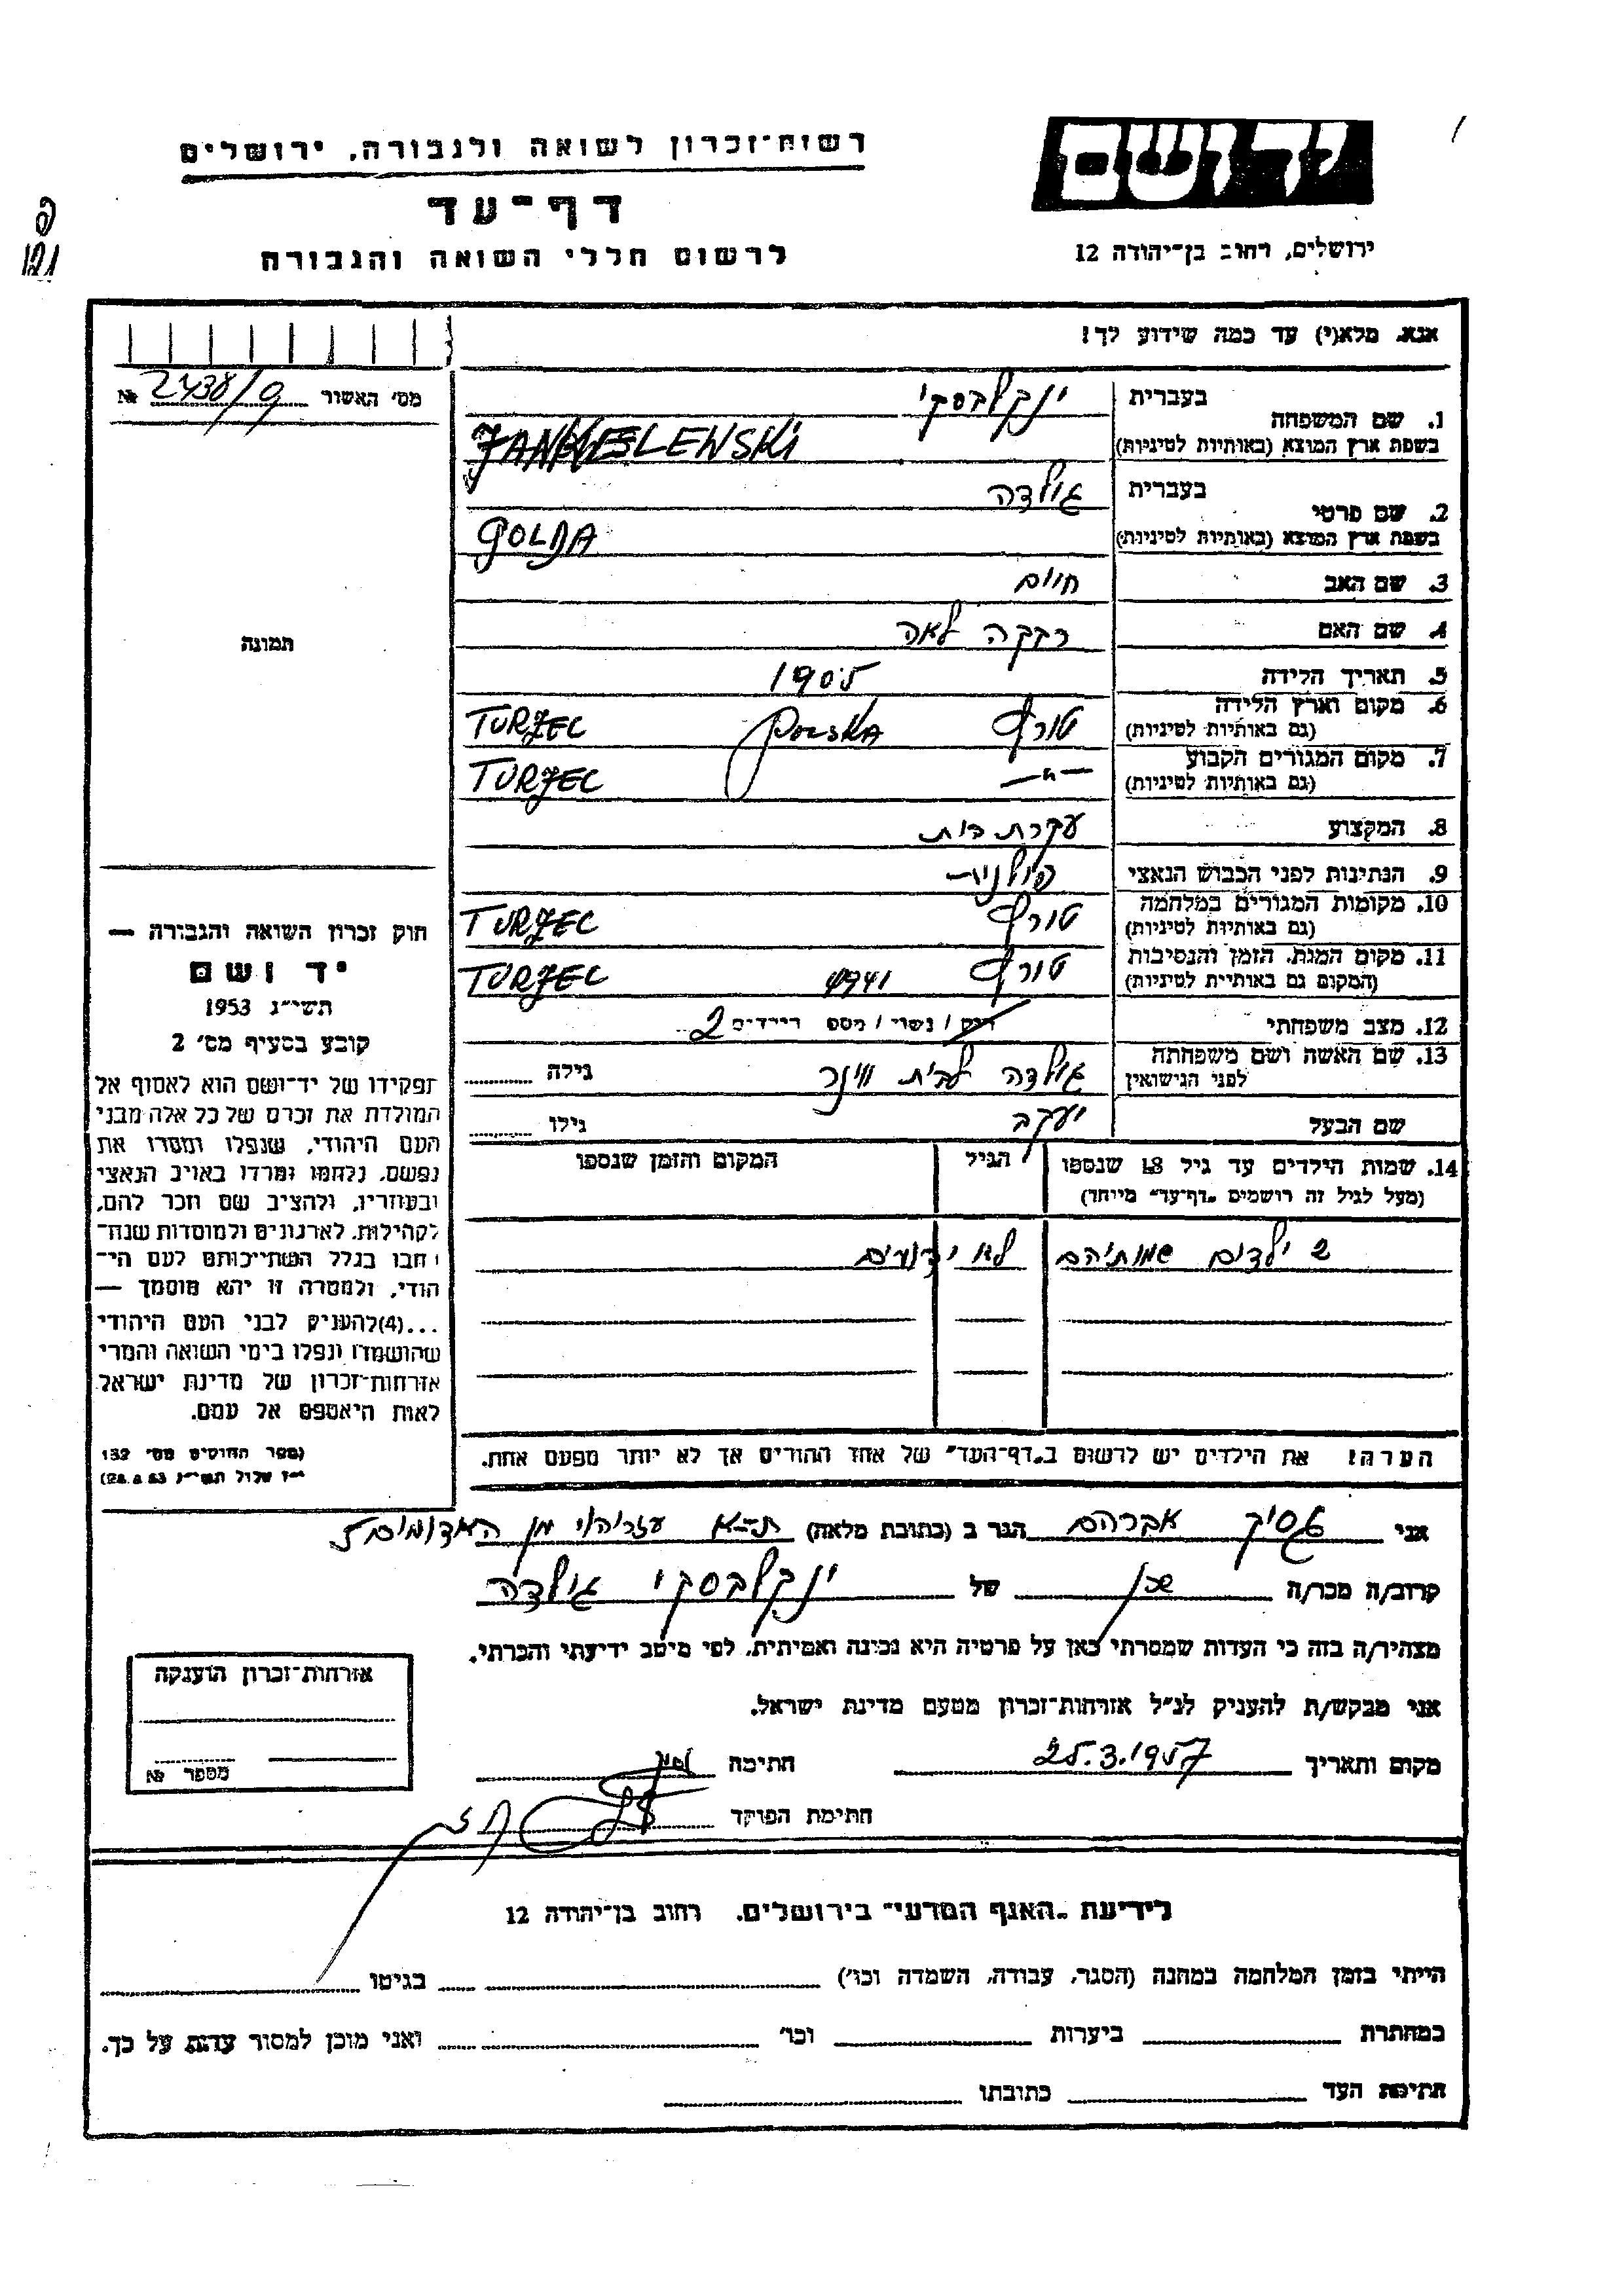 רשות־זכרון לשואה ולגבורה, ירושלים
דף־עד
לרשום חללי השואה והגבורה
יד ושם
ירושלים, רחוב בן־יהודה 12
אנא, מלא(י) עד כמה שידוע לך!
מס' האשור № 2438/9
1. שם המשפחה בעברית ינקלבסקי
בשפת ארץ המוצא (באותיות לטיניות) JANKELEWSKI
2. שם פרטי בעברית גולדה
בשפת ארץ המוצא (באותיות לטיניות) GOLDA
3. שם האב חיים
4. שם האם רבקה לאה
5. תאריך הלידה 1905
6. מקום וארץ הלידה (גם באותיות לטיניות) טורץ POLSKA TURZEC
7. מקום המגורים הקבוע (גם באותיות לטיניות) —"— TURZEC
8. המקצוע עקרת בית
9. הנתינות לפני הכבוש הנאצי פולנית
10. מקומות המגורים במלחמה (גם באותיות לטיניות) טורץ TURZEC
11. מקום המות, הזמן והנסיבות (המקום גם באותיות לטיניות) טורץ 1941 TURZEC
12. מצב משפחתי רוק / נשוי / מספ הילדים 2
13. שם האשה ושם משפחתה לפני הנישואין גולדה לבית וינר גילה
שם הבעל יעקב גילו
14. שמות הילדים עד גיל 18 שנספו (מעל לגיל זה רושמים "דף־עד" מיוחד) הגיל המקום והזמן שנספו
2 ילדים שמותיהם לא ידועים
הערה: את הילדים יש לרשום ב"דף־העד" של אחד ההורים אך לא יותר מפעם אחת.
תמונה
חוק זכרון השואה והגבורה —
יד ושם
תשי"ג 1953
קובע בסעיף מס' 2
תפקידו של יד־ושם הוא לאסוף אל
המולדת את זכרם של כל אלה מבני
העם היהודי, שנפלו ומסרו את
נפשם, נלחמו ומרדו באויב הנאצי
ובעוזריו, ולהציב שם וזכר להם,
לקהילות, לארגונים ולמוסדות שנח־
רבו בגלל השתייכותם לעם הי־
הודי, ולמטרה זו יהא מוסמך —
...(4)להעניק לבני העם היהודי
שהושמדו ונפלו בימי השואה והמרי
אזרחות־זכרון של מדינת ישראל
לאות היאספם אל עמם.
(ספר החוקים מס' 132
י"ז אלול תשי"ג 28.8.53)
אני אברהם הגר ב (כתובת מלאה) ת־א
קרוב/ה מכר/ה שכן של ינקלבסקי גולדה
מצהיר/ה בזה כי העדות שמסרתי כאן על פרטיה היא נכונה ואמיתית, לפי מיטב ידיעתי והכרתי.
אני מבקש/ת להעניק לנ"ל אזרחות־זכרון מטעם מדינת ישראל.
מקום ותאריך 25.3.1957 חתימה
חתימת הפוקד
אזרחות־זכרון הוענקה
מספר №
לידיעת "האגף המדעי" בירושלים, רחוב בן־יהודה 12
הייתי בזמן המלחמה במחנה (הסגר, עבודה, השמדה וכו') בגיטו
במחתרת ביערות וכו' ואני מוכן למסור עדות על כך.
חתימת העד כתובתו